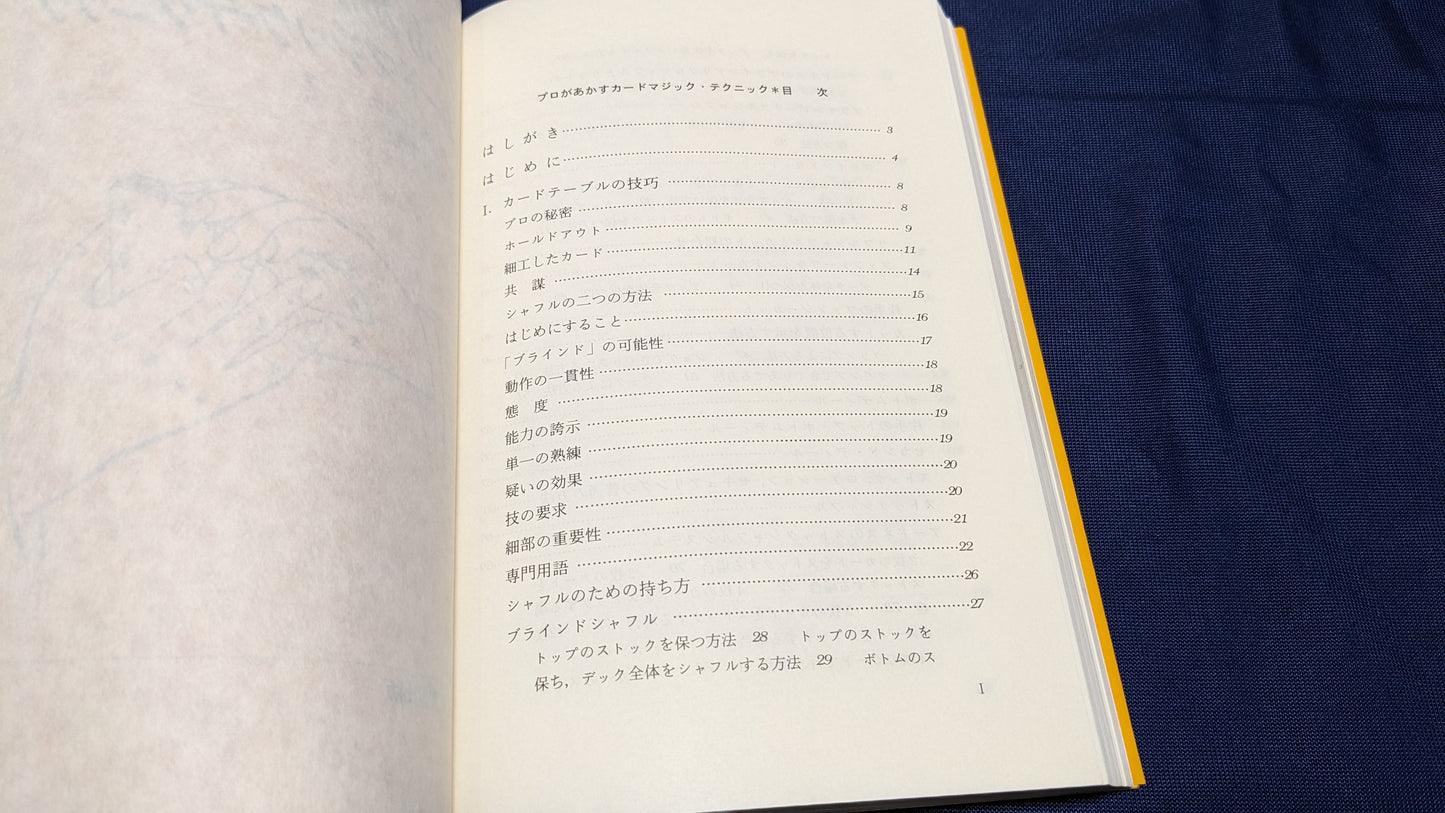 プロがあかすカードマジック・テクニック＊目　次
はしがき……………3
はじめに……………4
I. カードテーブルの技巧……………8
プロの秘密……………8
ホールドアウト……………9
細工したカード……………11
共　謀……………14
シャフルの二つの方法……………15
はじめにすること……………16
「ブラインド」の可能性……………17
動作の一貫性……………18
態　度……………18
能力の誇示……………19
単一の熟練……………19
疑いの効果……………20
技の要求……………20
細部の重要性……………21
専門用語……………22
シャフルのための持ち方……………26
ブラインドシャフル……………27
トップのストックを保つ方法　28　　トップのストックを
保ち，デック全体をシャフルする方法　29　　ボトムのス
I